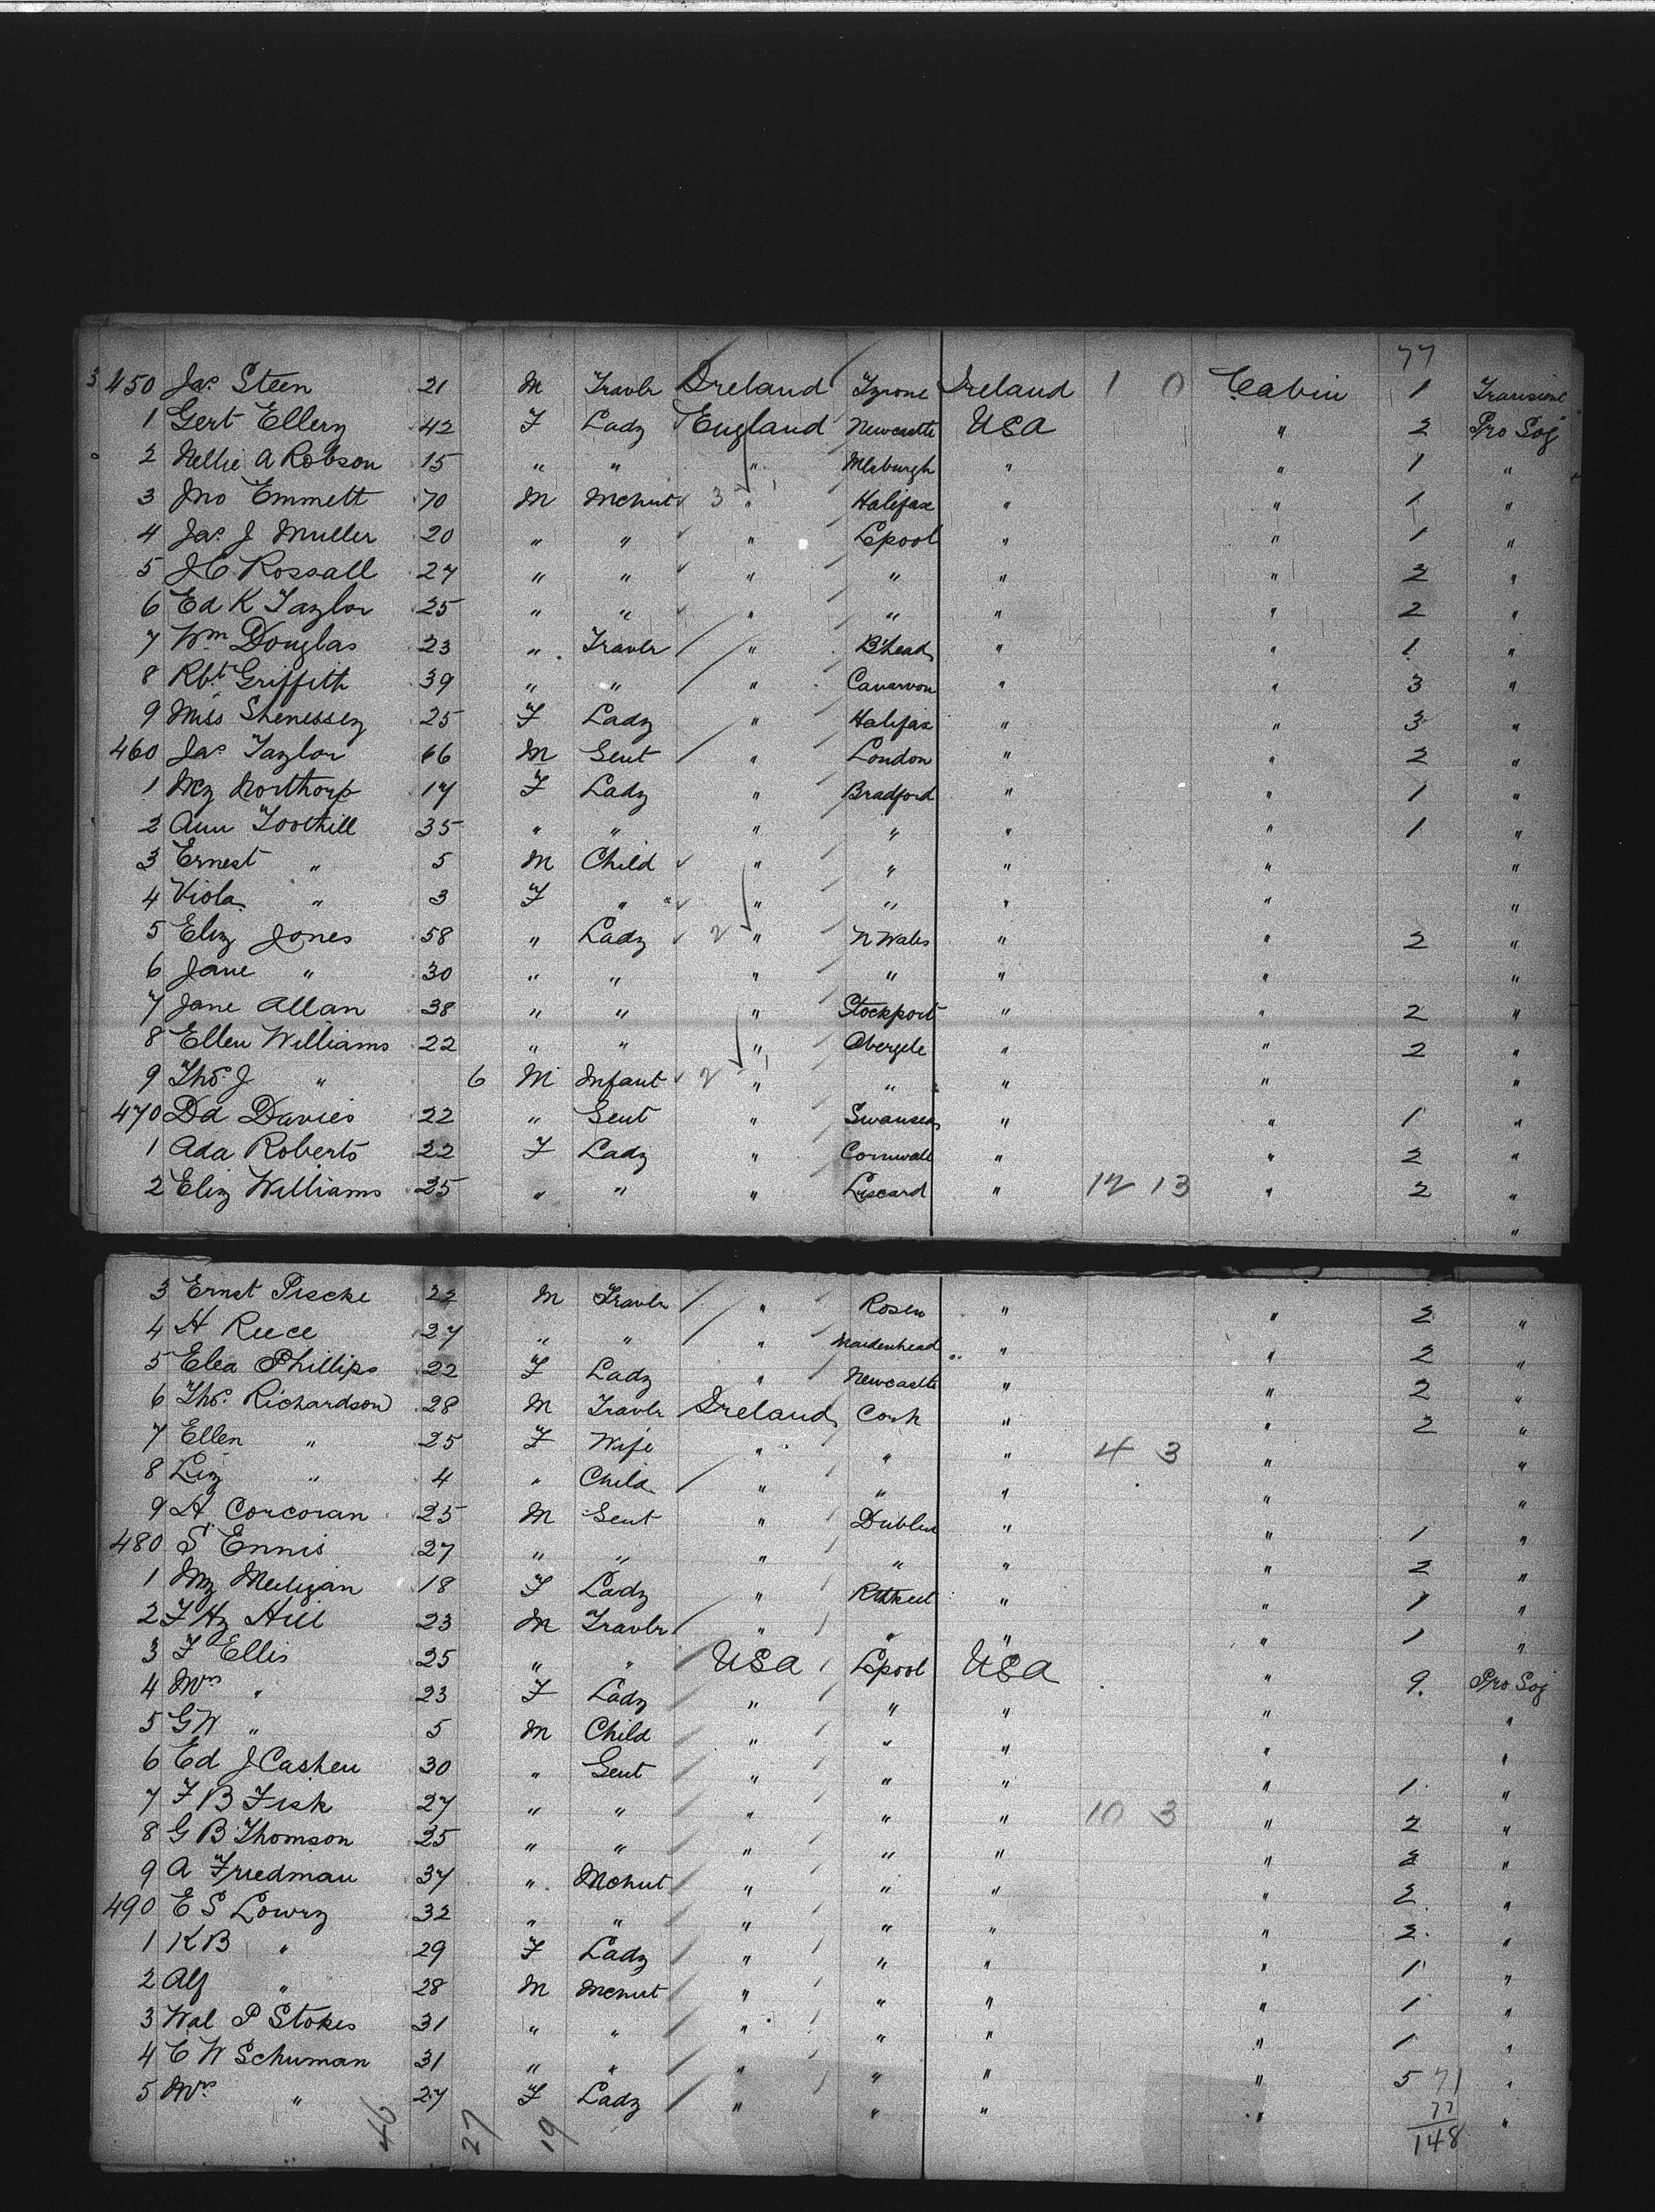 77
3 450 Jas Steen 21 M Travlr Ireland Tyrone Ireland 1 0 Cabin 1
1 Gert Ellery 42 F Lady England Newcastle USA " 2 Pro Soj
2 Nellie A Robson 15 " " " " " 1 "
3 Jno Emmett 70 M Mchnt 3 " Halifax " " 1 "
4 Jas J Muller 20 " " " Lpool " " 1 "
5 J C Rossall 27 " " " " " " 2 "
6 Ed K Taylor 25 " " " " " " 2 "
7 Wm Douglas 23 " Travlr " B'head " " 1 "
8 Rbt Griffith 39 " " " Canarvon " " 3 "
9 Miss Shenessey 25 F Lady " Halifax " " 3 "
460 Jas Taylor 66 M Gent " London " " 2 "
1 Northorp 17 F Lady " Bradford " " 1 "
2 Ann Toothill 35 " " " " " " 1 "
3 Ernest " 5 M Child " " " " "
4 Viola " 3 F " " " " " "
5 Eliz Jones 58 " Lady 2 " N Wales " " 2 "
6 Jane " 30 " " " " " " "
7 Jane Allan 38 " " " Stockport " " 2 "
8 Ellen Williams 22 " " " Abergele " " 2 "
9 Thos. J " 6 M Infant 2 " " " " "
470 Dd Davies 22 " Gent " Swansea " " 1 "
1 Ada Roberts 22 F Lady " Cornwall " " 2 "
2 Eliz Williams 25 " " " Liscard " 12 13 " 2 "
"
3 Ernst Piscke 22 M Travlr " Rosen " " 2 "
4 H Reece 27 " " " Maidenhead " " 2 "
5 Elea Phillips 22 F Lady " Newcastle " " 2 "
6 Thos. Richardson 28 M Travlr Ireland Cork " " 2 "
7 Ellen " 25 F Wife " " " 4 3 " "
8 Liz " 4 " Child " " " " "
9 H Corcoran 25 M Gent " Dublin " " 1 "
480 S Ennis 27 " " " " " " 2 "
1 My Meligan 18 F Lady " " " 1 "
2 F Hy Hill 23 M Travlr " " " " 1 "
3 F Ellis 25 " " USA Lpool USA " 9. Pro Soj
4 Mrs " 23 F Lady " " " " "
5 G W " 5 M Child " " " " "
6 Ed J Cashen 30 " Gent " " " " 1 "
7 F B Fisk 27 " " " " " 10 3 " 2 "
8 G B Thomson 25 " " " " " " 2 "
9 A Friedman 37 " Mchnt " " " " 2 "
490 E S Lowry 32 " " " " " " 2 "
1 K B " 29 F Lady " " " " 1 "
2 Alf " 28 M Mchnt " " " " 1 "
3 Wal P Stokes 31 " " " " " " 1 "
4 C W Schuman 31 " " " " " " 5 71 "
5 Mrs " 27 F Lady " " " " 77 "
46 27 19 148